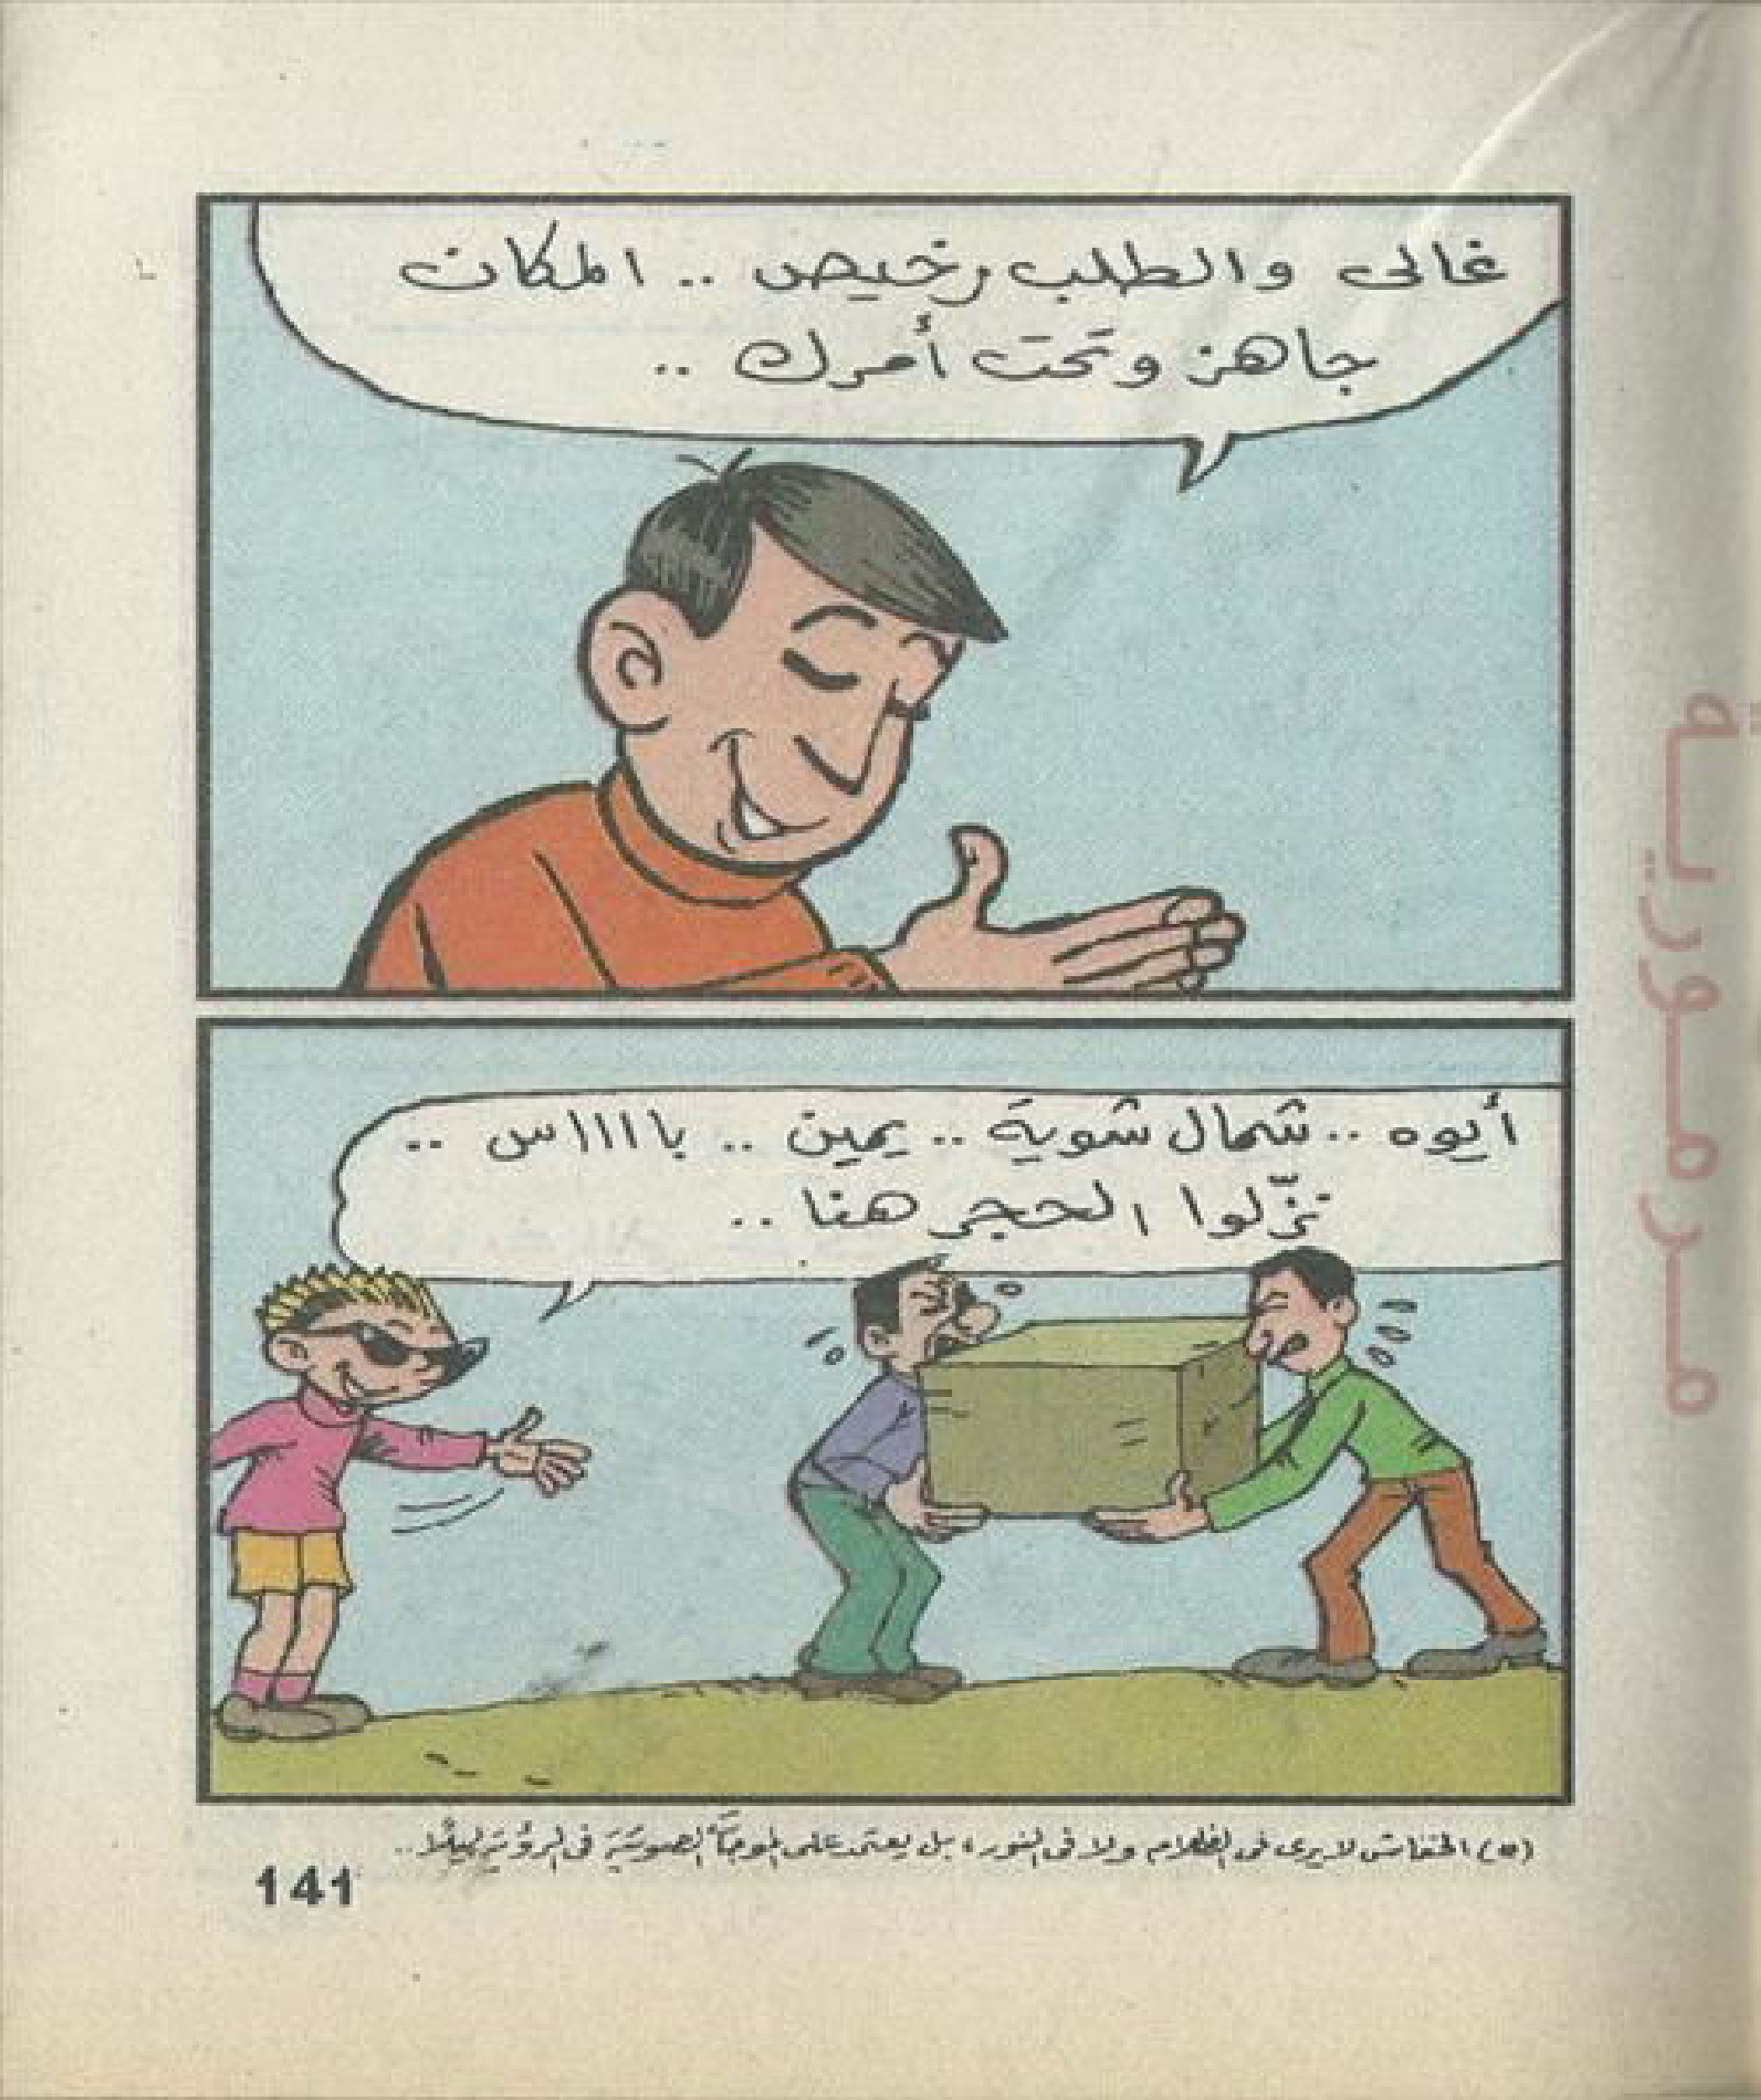 غالى والطلب رخيص .. المكان
جاهز وتحت أمرك ..
أيوه .. شمال شوية .. يمين .. باااااس ..
نزّلوا الحجر هنا ..
(٥) الخفاش لا يرى فى الظلام ولا فى النور، بل يعتمد على الموجات الصوتية فى الرؤية ليلًا..
141